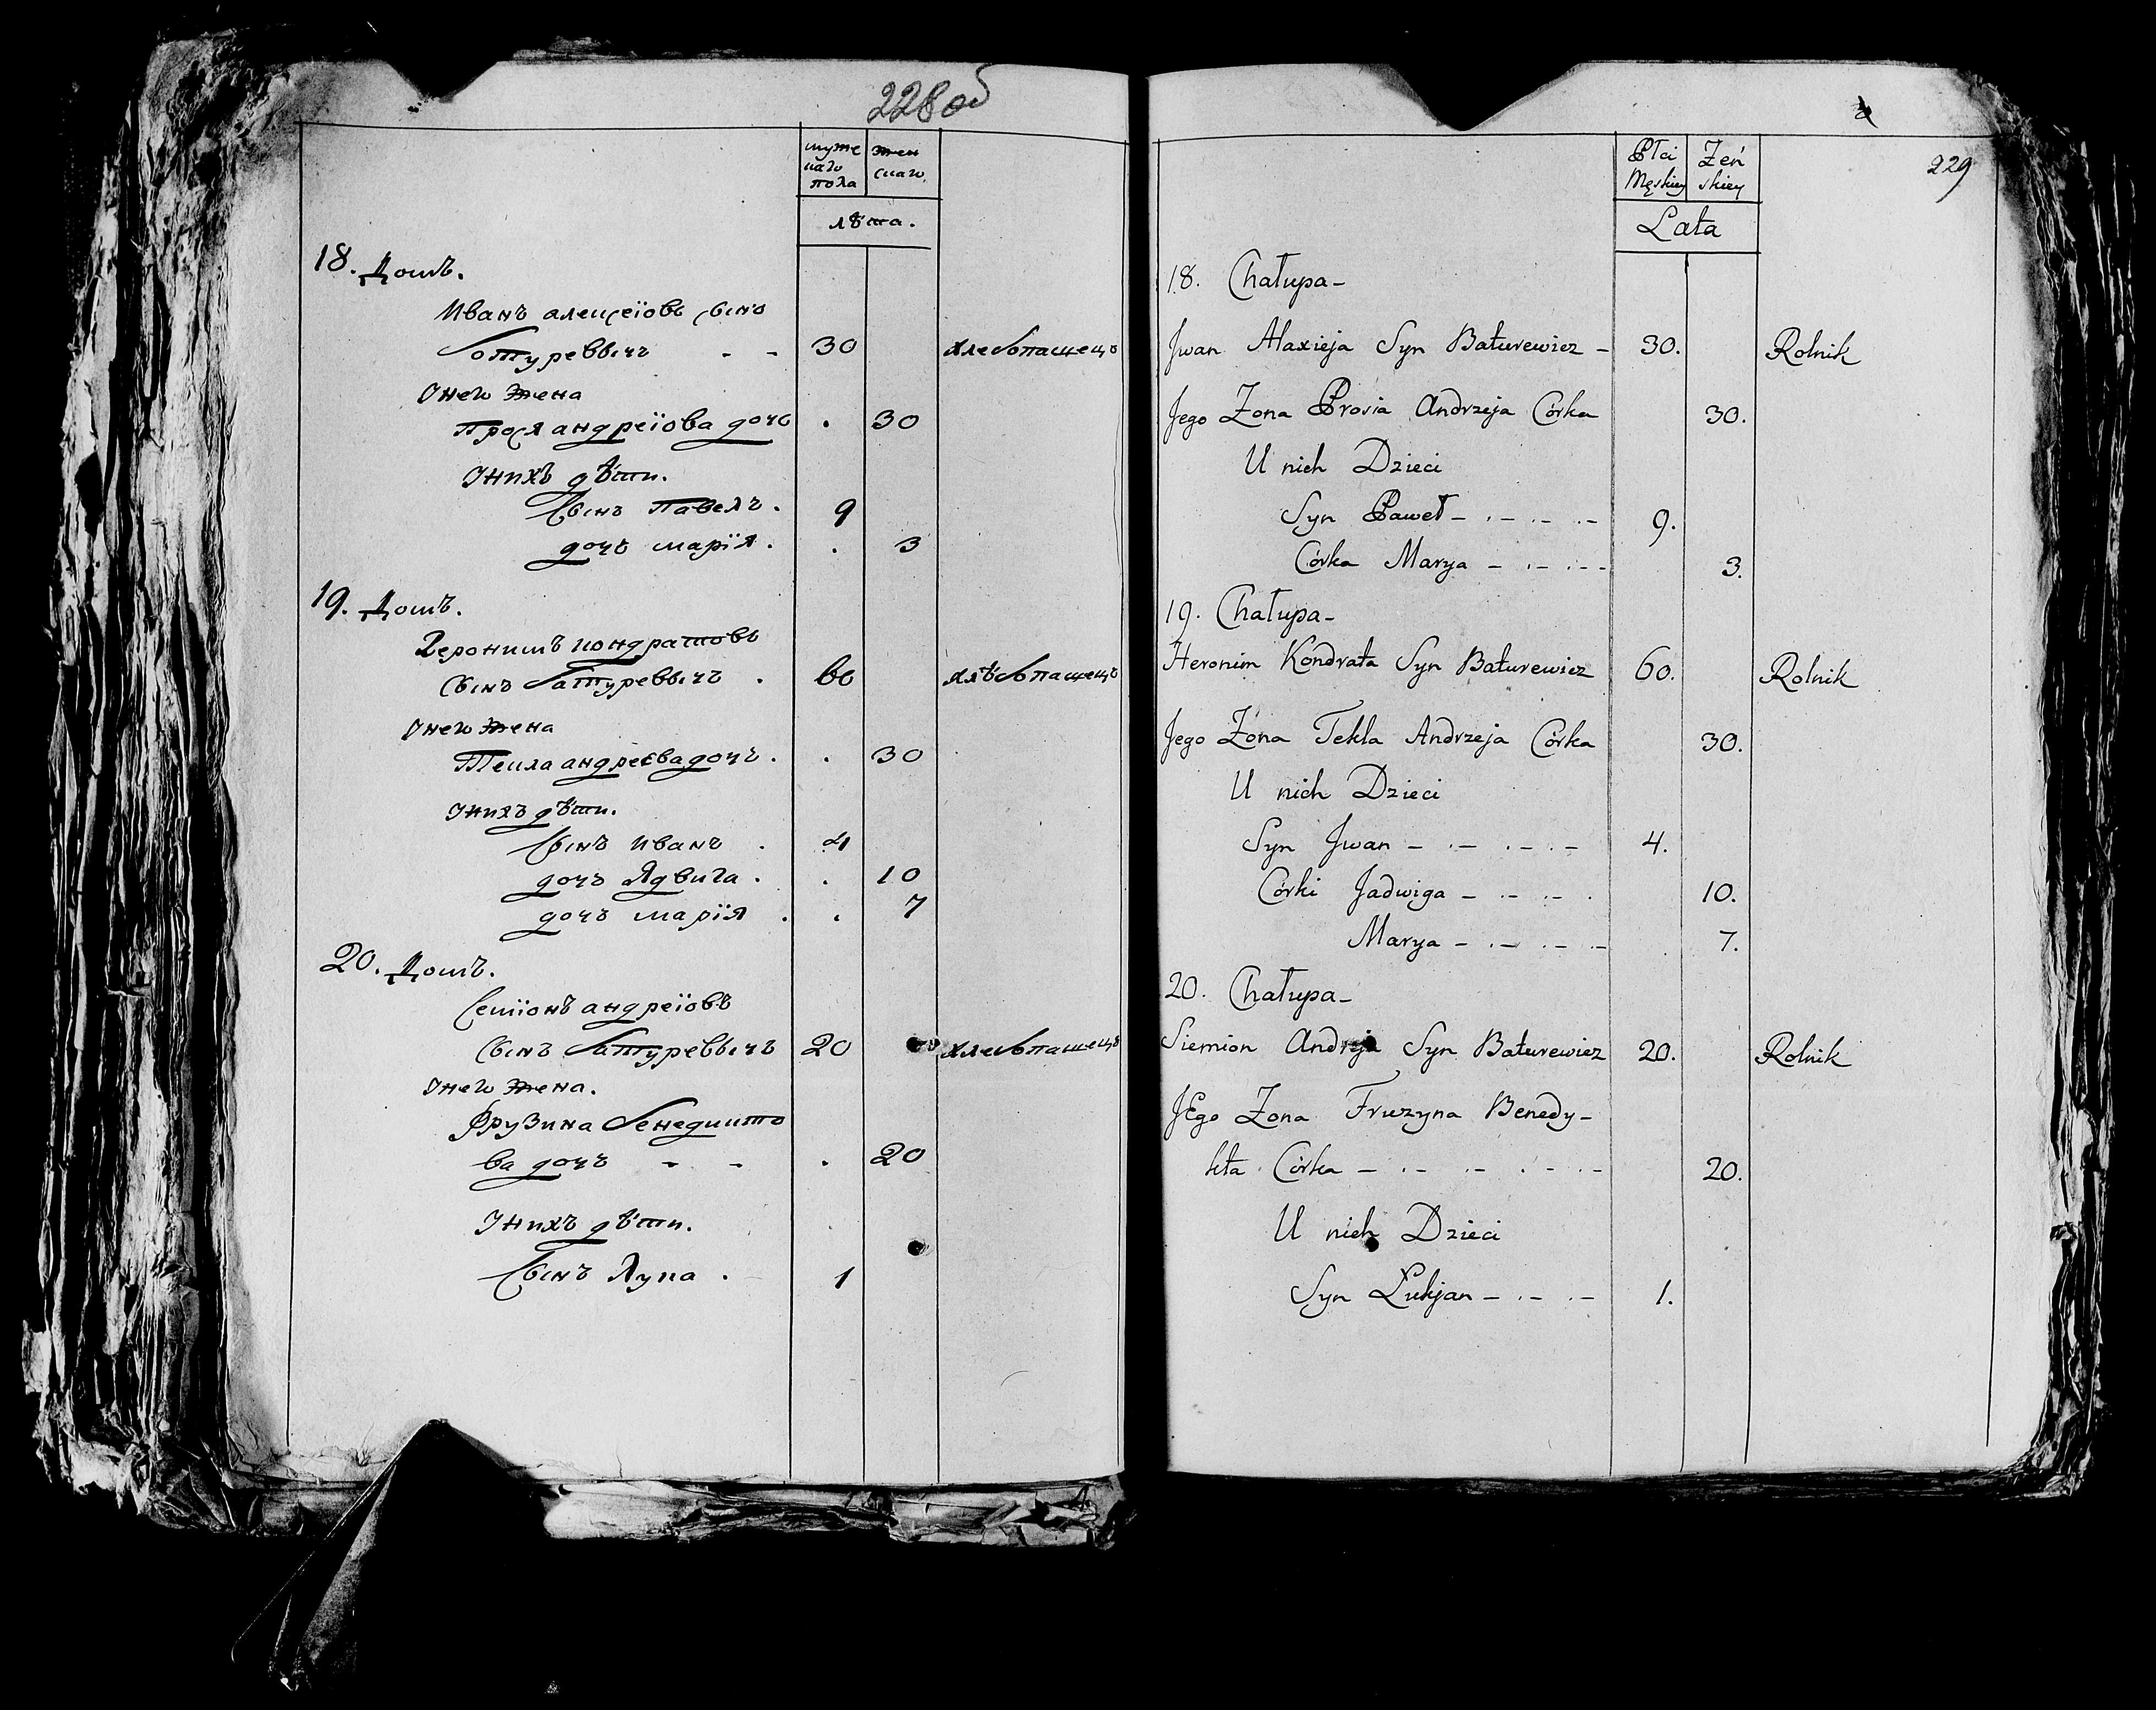 228 об
муже
каго
пола
жен
скаго
лѣта.
18. Домъ.
Иванъ алексеіовъ сынъ
Ботуревычъ - - 30 хлебопашецъ
Унего жена
Прося андреіова дочь . 30
Унихъ дѣти.
Сынъ Павелъ. 9
дочъ марія. . 3
19. Домъ.
Херонимъ кондратовъ
Сынъ Батуревычъ . 60 хлѣбопашецъ
Унего жена
Текла андреева дочъ. . 30
Унихъ дѣти.
Сынъ Иванъ . 4
дочъ Ядвига . . 10
дочъ марія . . 7
20. Домъ.
Семіонъ андреіовъ
Сынъ Батуревычъ 20 хлебопашецъ
Унего жена.
Фрузина Бенедикто
ва дочъ - - . 20
Унихъ дѣти.
Сынъ Лука . 1
229
Płci
Męskiey
Zeń
skiey
Lata
18. Chałupa -
Jwan Alaxieja Syn Baturewicz - 30. Rolnik
Jego Zona Prosia Andrzeja Córka 30.
U nich Dzieci
Syn Paweł - . - . - . - 9.
Córka Marya - . - . - - 3.
19. Chałupa -
Heronim Kondrata Syn Baturewicz 60. Rolnik
Jego Żona Tekla Andrzeja Córka 30.
U nich Dzieci
Syn Jwan - . - . - . - 4.
Córki Jadwiga - . - . - . 10.
Marya - . - . - - 7.
20. Chałupa -
Siemion Andreja Syn Baturewicz 20. Rolnik
JEgo Zona Fruzyna Benedy-
kta Córka - . - . - . - . - 20.
U nich Dzieci
Syn Łukjan - . - . - 1.